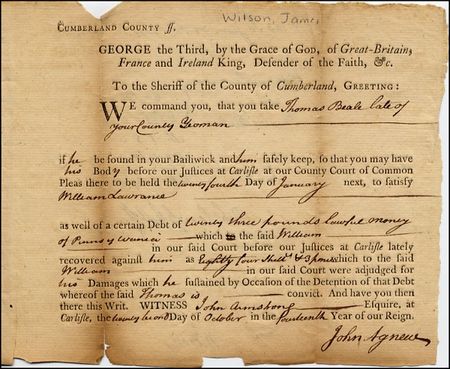 Wilson, Jame
CUMBERLAND COUNTY ſſ.
GEORGE the Third, by the Grace of GOD, of Great-Britain,
France and Ireland King, Defender of the Faith, &c.
To the Sheriff of the County of Cumberland, GREETING:
WE command you, that you take Thomas Beale late of
your County Yeoman
if he be found in your Bailiwick and him ſafely keep, ſo that you may have
his Body before our Juſtices at Carliſle at our County Court of Common
Pleas there to be held the twenty fourth Day of January next, to ſatisfy
William Lawrance
as well of a certain Debt of twenty three pounds lawful money
of Pennsylvania which the ſaid William
in our ſaid Court before our Juſtices at Carliſle lately
recovered againſt him as Eighty four Shills & 3 pence which to the ſaid
William in our ſaid Court were adjudged for
his Damages which he ſuſtained by Occaſion of the Detention of that Debt
whereof the ſaid Thomas is convict. And have you then
there this Writ. WITNESS John Armstrong Eſquire, at
Carliſle, the twenty second Day of October in the fourteenth Year of our Reign.
John Agnew